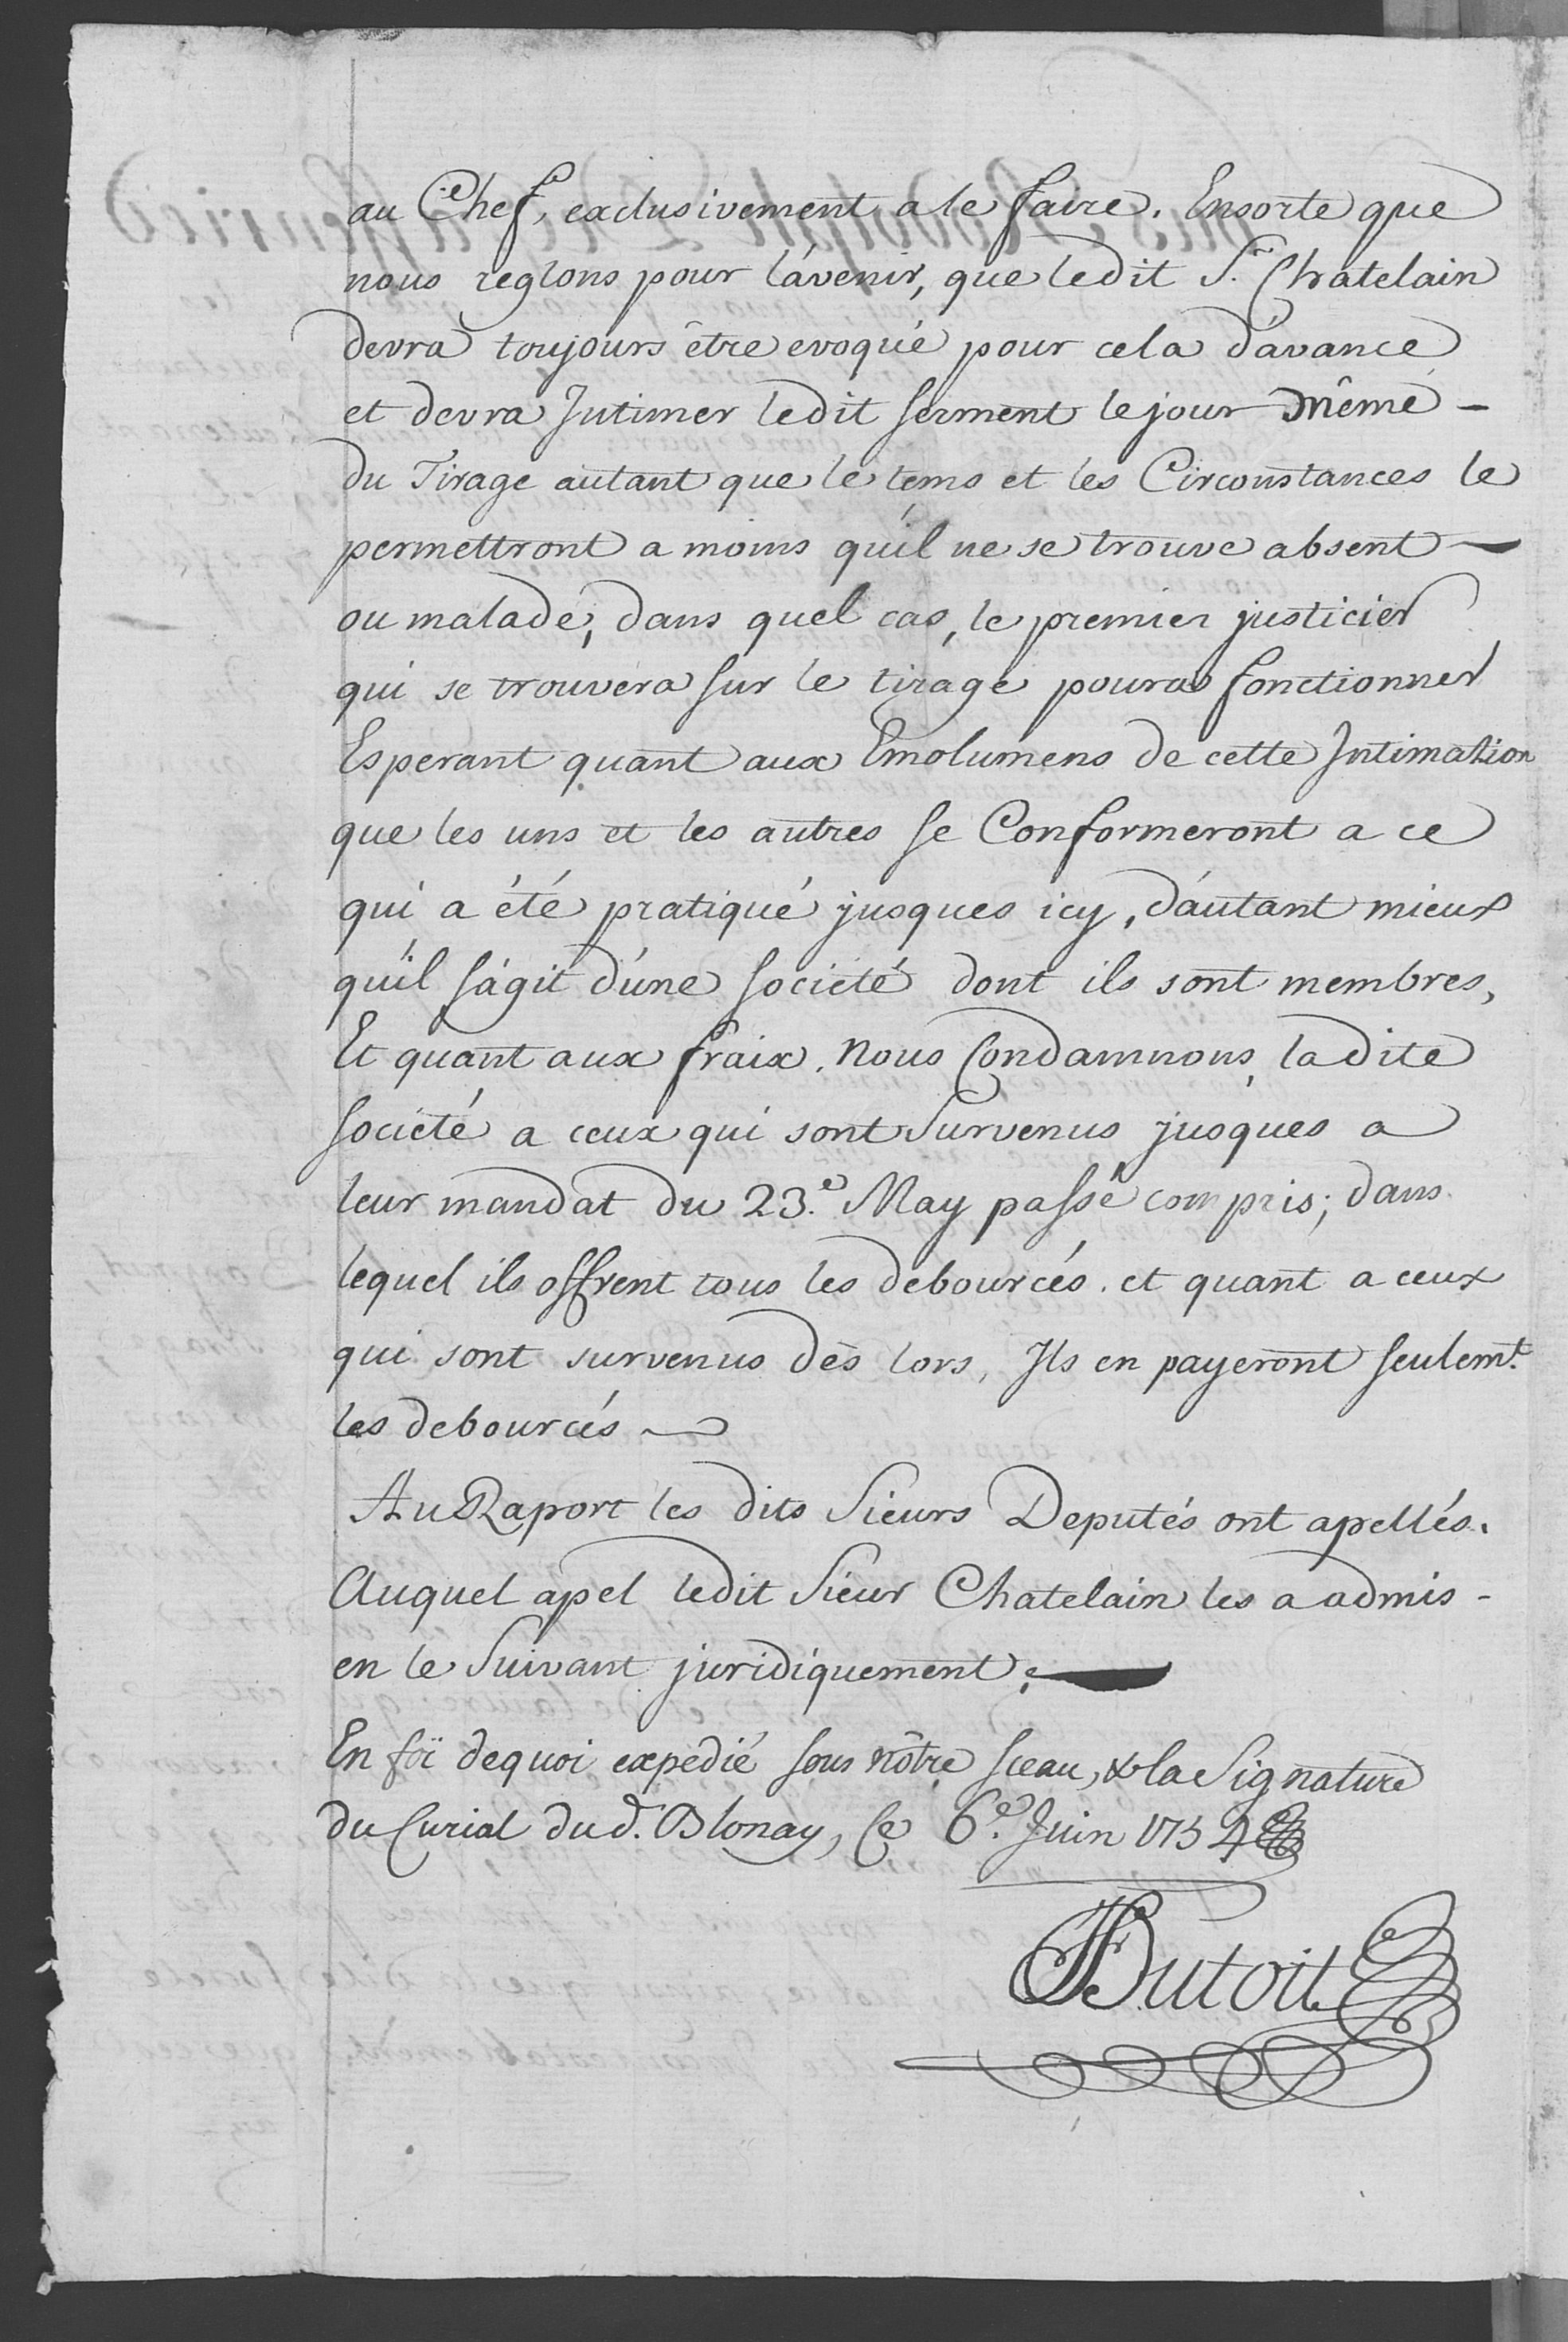 au Chef, exclusivement a le faire. Ensorte que
nous reglons pour l'avenir, que ledit S.r Chatelain
devra toujours être evoqué pour cela d'avance
et devra Intimer ledit serment le jour même -
du Tirage autant que le tems et les Circonstances le
permettront a moins qu'il ne se trouve absent -
ou malade, dans quel cas, le premier justicier
qui se trouvera sur le tirage poura fonctionner
Esperant quant aux Emolumens de cette Intimation
que les uns et les autres se Conformeront a ce
qui a été pratiqué jusques icy, d'autant mieux
qu'il s'agit d'une société dont ils sont membres,
Et quant aux fraix. Nous Condamnons, ladite
société a ceux qui sont survenus jusques a
leur mandat du 23.e May passé compris; dans
lequel ils offrent tous les debourcés. et quant a ceux
qui sont survenus dès lors, Ils en payeront seulem.t
les debourcés -
Au Raport les dits Sieurs Deputés ont apellés.
Auquel apel ledit Sieur Chatelain les a admis -
en le suivant juridiquement. -
En foï dequoi expedié sous nôtre sceau, & la Signature
du Curial dud. Blonay, Ce 6.e Juin 1754
Dutoit